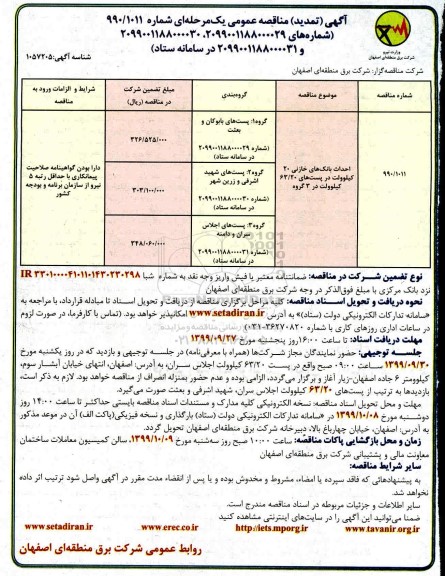 آگهی (تمدید) مناقصه عمومی یک‌مرحله‌ای شماره ۹۹۰/۱۰۱۱
(شماره‌های ۲۰۹۹۰۰۱۱۸۸۰۰۰۰۲۹، ۲۰۹۹۰۰۱۱۸۸۰۰۰۰۳۰
و ۲۰۹۹۰۰۱۱۸۸۰۰۰۰۳۱ در سامانه ستاد)
وزارت نیرو
شرکت برق منطقه‌ای اصفهان
شناسه آگهی: ۱۰۵۷۲۰۵
شرکت مناقصه‌گزار: شرکت برق منطقه‌ای اصفهان
شماره مناقصه
موضوع مناقصه
گروه‌بندی
مبلغ تضمین شرکت در مناقصه (ریال)
شرایط و الزامات ورود به مناقصه
۹۹۰/۱۰۱۱
احداث بانک‌های خازنی ۲۰ کیلوولت در پست‌های ۶۳/۲۰ کیلوولت در ۳ گروه
گروه۱: پست‌های بابوکان و بعثت
(شماره ۲۰۹۹۰۰۱۱۸۸۰۰۰۰۲۹ در سامانه ستاد)
۳۲۶/۵۲۵/۰۰۰
گروه۲: پست‌های شهید اشرفی و زرین شهر
(شماره ۲۰۹۹۰۰۱۱۸۸۰۰۰۰۳۰ در سامانه ستاد)
۳۰۳/۱۰۰/۰۰۰
گروه۳: پست‌های اجلاس سران و دامنه
(شماره ۲۰۹۹۰۰۱۱۸۸۰۰۰۰۳۱ در سامانه ستاد)
۳۴۸/۰۶۰/۰۰۰
دارا بودن گواهینامه صلاحیت پیمانکاری با حداقل رتبه ۵ نیرو از سازمان برنامه و بودجه کشور
نوع تضمین شرکت در مناقصه: ضمانتنامه معتبر یا فیش واریز وجه نقد به شماره شبا IR ۳۳۰۱۰۰۰۰۴۱۰۱۱۰۱۴۲۰۲۳۰۲۹۸
نزد بانک مرکزی با مبلغ فوق‌الذکر در وجه شرکت برق منطقه‌ای اصفهان
نحوه دریافت و تحویل اسناد مناقصه: کلیه مراحل برگزاری مناقصه از دریافت و تحویل اسناد تا مبادله قرارداد، با مراجعه به
«سامانه تدارکات الکترونیکی دولت (ستاد)» به آدرس www.setadiran.ir امکانپذیر خواهد بود. (تماس با کارفرما، در صورت لزوم
در ساعات اداری روزهای کاری با شماره ۳۶۲۷۰۸۲۰-۰۳۱)
مهلت دریافت اسناد: تا ساعت ۱۶:۰۰ روز پنجشنبه مورخ ۱۳۹۹/۰۹/۲۷
جلسه توجیهی: حضور نمایندگان مجاز شرکت‌ها (همراه با معرفی‌نامه) در جلسه توجیهی و بازدید که در روز یکشنبه مورخ
۱۳۹۹/۰۹/۳۰ ساعت ۰۹:۰۰ صبح واقع در پست ۶۳/۲۰ کیلوولت اجلاس سران، به آدرس: اصفهان، انتهای خیابان آبشار سوم،
کیلومتر ۶ جاده اصفهان-زیار آغاز و برگزار می‌گردد، الزامی بوده و عدم حضور بمنزله انصراف از مناقصه خواهد بود. لازم به ذکر است،
بازدیدها به ترتیب از پست‌های ۶۳/۲۰ کیلوولت اجلاس سران، شهید اشرفی و بعثت صورت می‌گیرد.
مهلت و محل تحویل اسناد مناقصه: نسخه الکترونیکی کلیه مدارک و مستندات اسناد مناقصه بایستی حداکثر تا ساعت ۱۴:۰۰ روز
دوشنبه مورخ ۱۳۹۹/۱۰/۰۸ در «سامانه تدارکات الکترونیکی دولت (ستاد)» بارگذاری و نسخه فیزیکی(پاکت الف) آن در موعد مذکور
به آدرس: اصفهان، خیابان چهارباغ بالا، دبیرخانه شرکت برق منطقه‌ای اصفهان تحویل گردد.
زمان و محل بازگشایی پاکات مناقصه: ساعت ۱۰:۰۰ صبح روز سه‌شنبه مورخ ۱۳۹۹/۱۰/۰۹، سالن کمیسیون معاملات ساختمان
معاونت مالی و پشتیبانی شرکت برق منطقه‌ای اصفهان
سایر شرایط مناقصه:
به پیشنهادهائی که فاقد سپرده یا امضاء، مشروط و مخدوش بوده و یا پس از انقضاء مدت مقرر در آگهی واصل شود ترتیب اثر داده
نخواهد شد.
سایر اطلاعات و جزئیات مربوطه در اسناد مناقصه مندرج است.
ضمنا می‌توانید این آگهی را در سایت‌های اینترنتی مشاهده کنید
www.tavanir.org.ir http://iets.mporg.ir www.erec.co.ir www.setadiran.ir
روابط عمومی شرکت برق منطقه‌ای اصفهان